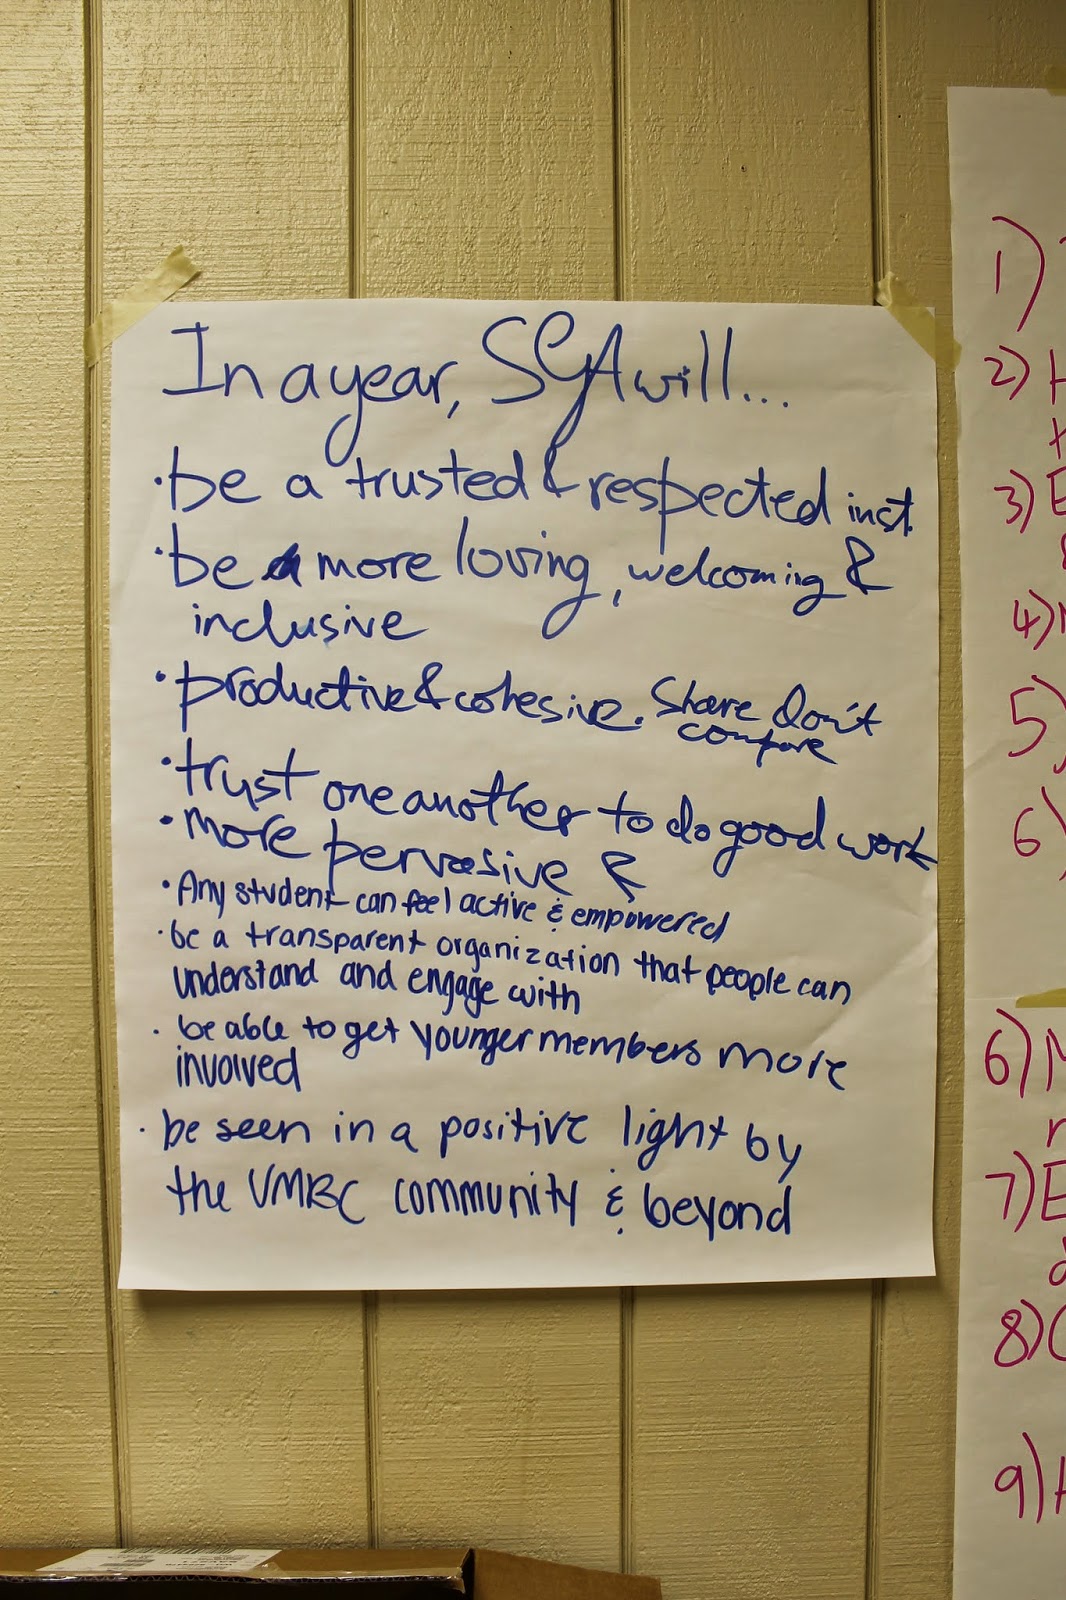 In a year, SGA will...
• be a trusted & respected inst.
• be more loving, welcoming &
inclusive
• productive & cohesive. Share don't
compare
• trust one another to do good work
• more pervasive &
• Any student can feel active & empowered
• be a transparent organization that people can
understand and engage with
• be able to get younger members more
involved
• be seen in a positive light by
the UMBC community & beyond
1)
2) H
3) E
4)
5)
6)
6) M
7) E
8)
9)